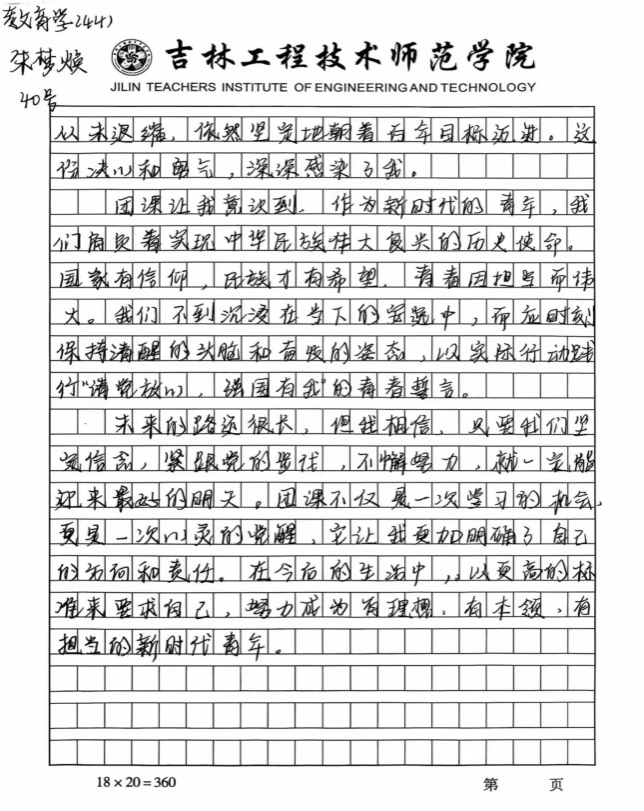 教育学2441
朱梦焕
40号
吉林工程技术师范学院
JILIN TEACHERS INSTITUTE OF ENGINEERING AND TECHNOLOGY
从未退缩，依然坚定地朝着百年目标迈进。这
份决心和勇气，深深感染了我。
团课让我意识到，作为新时代的青年，我
们肩负着实现中华民族伟大复兴的历史使命。
国家有信仰，民族才有希望，青春因担当而伟
大。我们不到沉浸在当下的安逸中，而应时刻
保持清醒的头脑和奋发的姿态，以实际行动践
行"请党放心，强国有我"的青春誓言。
未来的路还很长，但我相信，只要我们坚
定信念，紧跟党的步伐，不懈努力，就一定能
迎来最好的明天。团课不仅是一次学习的机会，
更是一次心灵的觉醒，它让我更加明确了自己
的方向和责任。在今后的生活中，以更高的标
准来要求自己，努力成为有理想、有本领、有
担当的新时代青年。
18×20=360
第 页